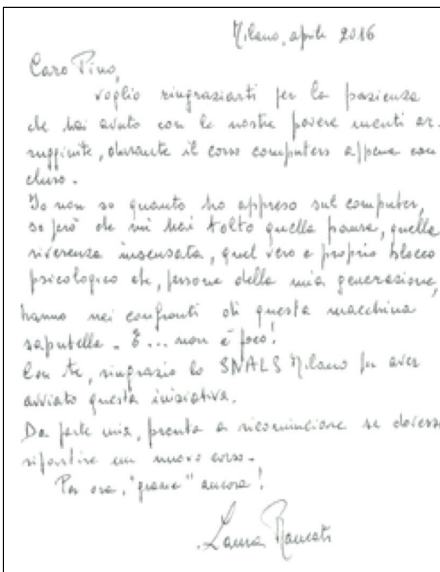 Milano, aprile 2016
Caro Pino,
voglio ringraziarti per la pazienza
che hai avuto con le nostre povere menti ar-
rugginite, durante il corso computers appena con
cluso.
Io non so quanto ho appreso sul computer,
so però che mi hai tolto quella paura, quella
riverenza insensata, quel vero e proprio blocco
psicologico che, persone della mia generazione,
hanno nei confronti di questa macchina
saputella. E... non è poco!
Con te, ringrazio lo SNALS Milano per aver
avviato questa iniziativa.
Da parte mia, pronta a ricominciare se dovesse
ripartire un nuovo corso.
Per ora, "grazie" ancora!
Laura